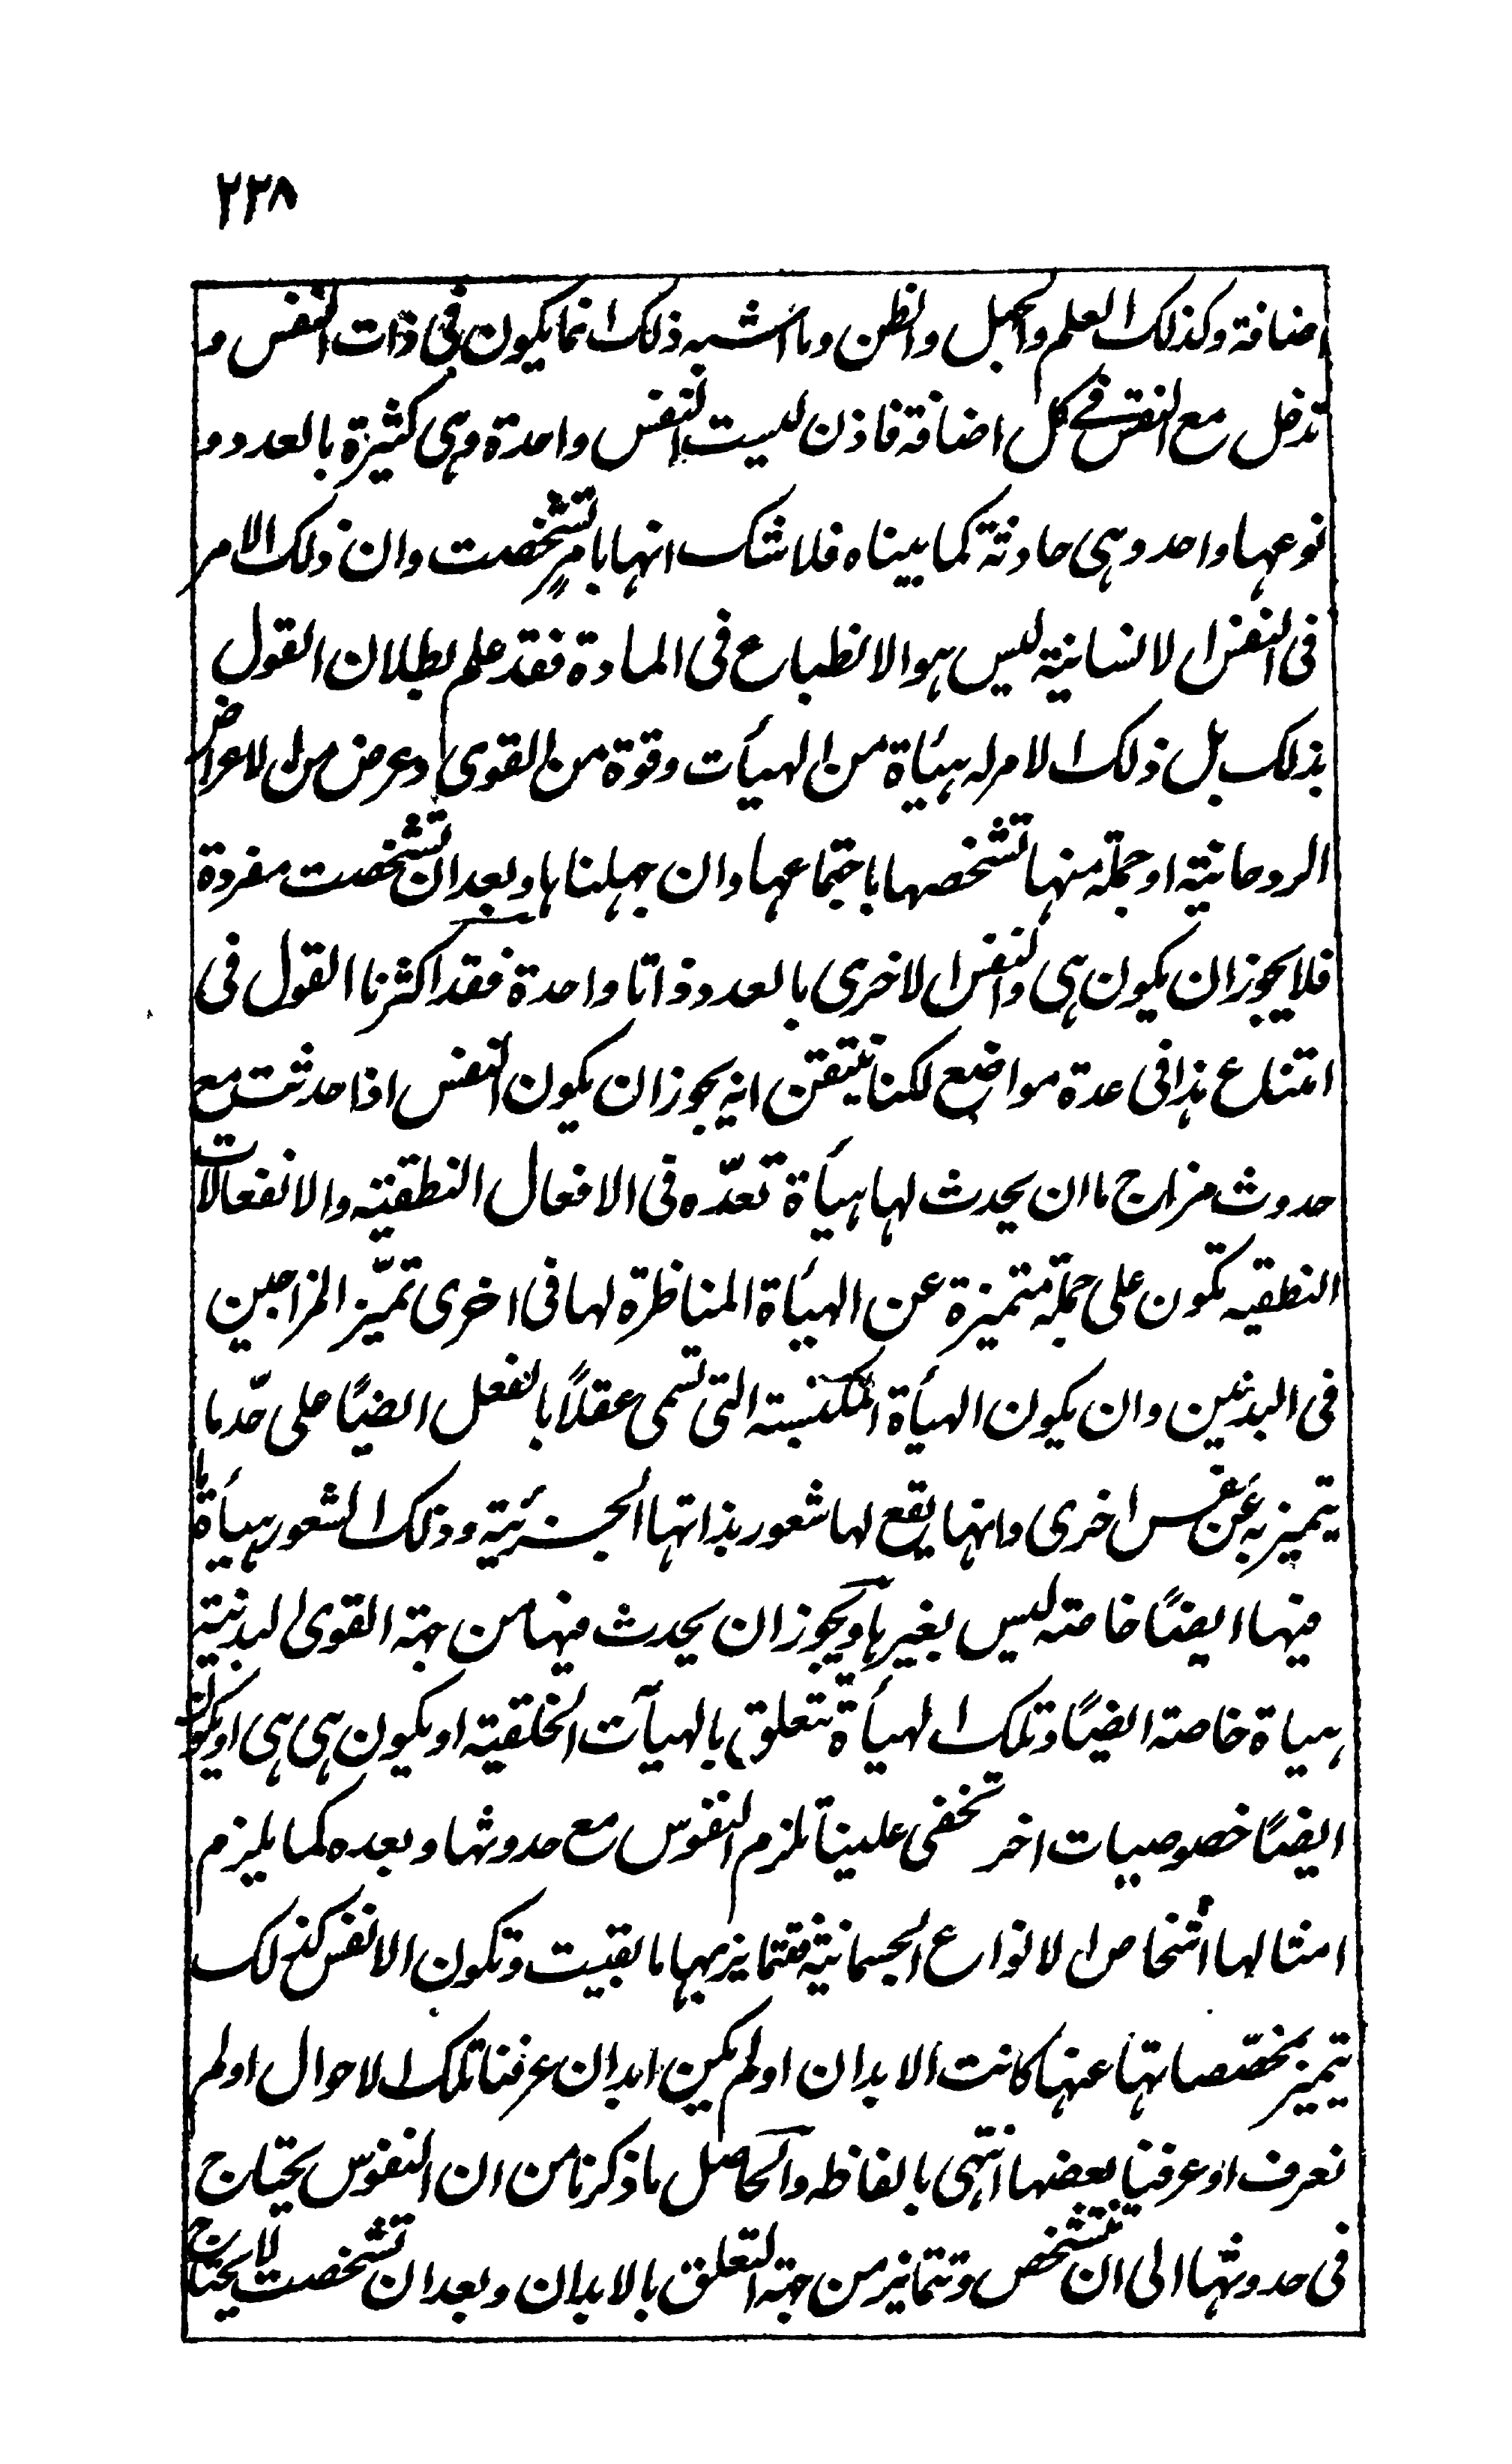 ٢٣٨
اضافة وكذلك العلم والجهل والظن وما اشبه ذلك انما يكون فى ذات النفس و
تدخل مع النفس فى كل اضافة فاذن ليست النفس واحدة وهى كثيرة بالعدد و
نوعها واحد وهى حادثة كما بيناه فلا شك انها بامرٍ تشخصت وان ذلك الامر
فى النفس الانسانية ليس هو الانطباع فى المادة فقد علم بطلان القول
بذلك بل ذلك الامر له هيأة من الهيأت وقوة من القوى وعرض من الاعراض
الروحانية او جملة منها تشخصها باجتماعها وان جهلناها وبعد ان تشخصت مفردة
فلا يجوز ان يكون هى والنفس الاخرى بالعدد ذاتا واحدة فقد اكثرنا القول فى
امتناع هذا فى عدة مواضع لكنا نتيقن انه يجوز ان يكون النفس اذا حدثت مع
حدوث مزاج ما ان يحدث لها هيأة تعدّه فى الافعال النطقية والانفعالات
النطقيه تكون على جملة متميزة عن الهيأة المناظرة لها فى اخرى تميّز المزاجين
فى البدنين وان يكون الهيأة المكتسبة التى تسمى عقلاً بالفعل ايضًا على حّد ما
يتميز به عن نفس اخرى وانها يقع لها شعور بذاتها الجزئية وذلك الشعور هيأة ما
فيها ايضًا خاصته ليس بغيرها ويجوز ان يحدث فيها من جهة القوى البدنية
هياة خاصة ايضًا وتلك الهيأة تتعلق بالهيآت الخلقية او يكون هى هى او يكون
ايضًا خصوصيات اخر تخفى علينا تلزم النفوس مع حدوثها وبعده كما يلزم
امثالها أشخاص الانواع الجسمانية فتتمايز بها ما بقيت وتكون الانفس كذلك
يتميز بمخصّصاتها عنها كانت الابدان او لم يكن ابدان عرفنا تلك الاحوال او لم
نعرف او عرفنا بعضها انتهى بالفاظه والحاصل ما ذكرنا من ان النفوس يحتاج
فى حدوثها الى ان تتشخص وتتمايز من جهة التعلق بالابدان وبعد ان تشخصت لا يحتاج